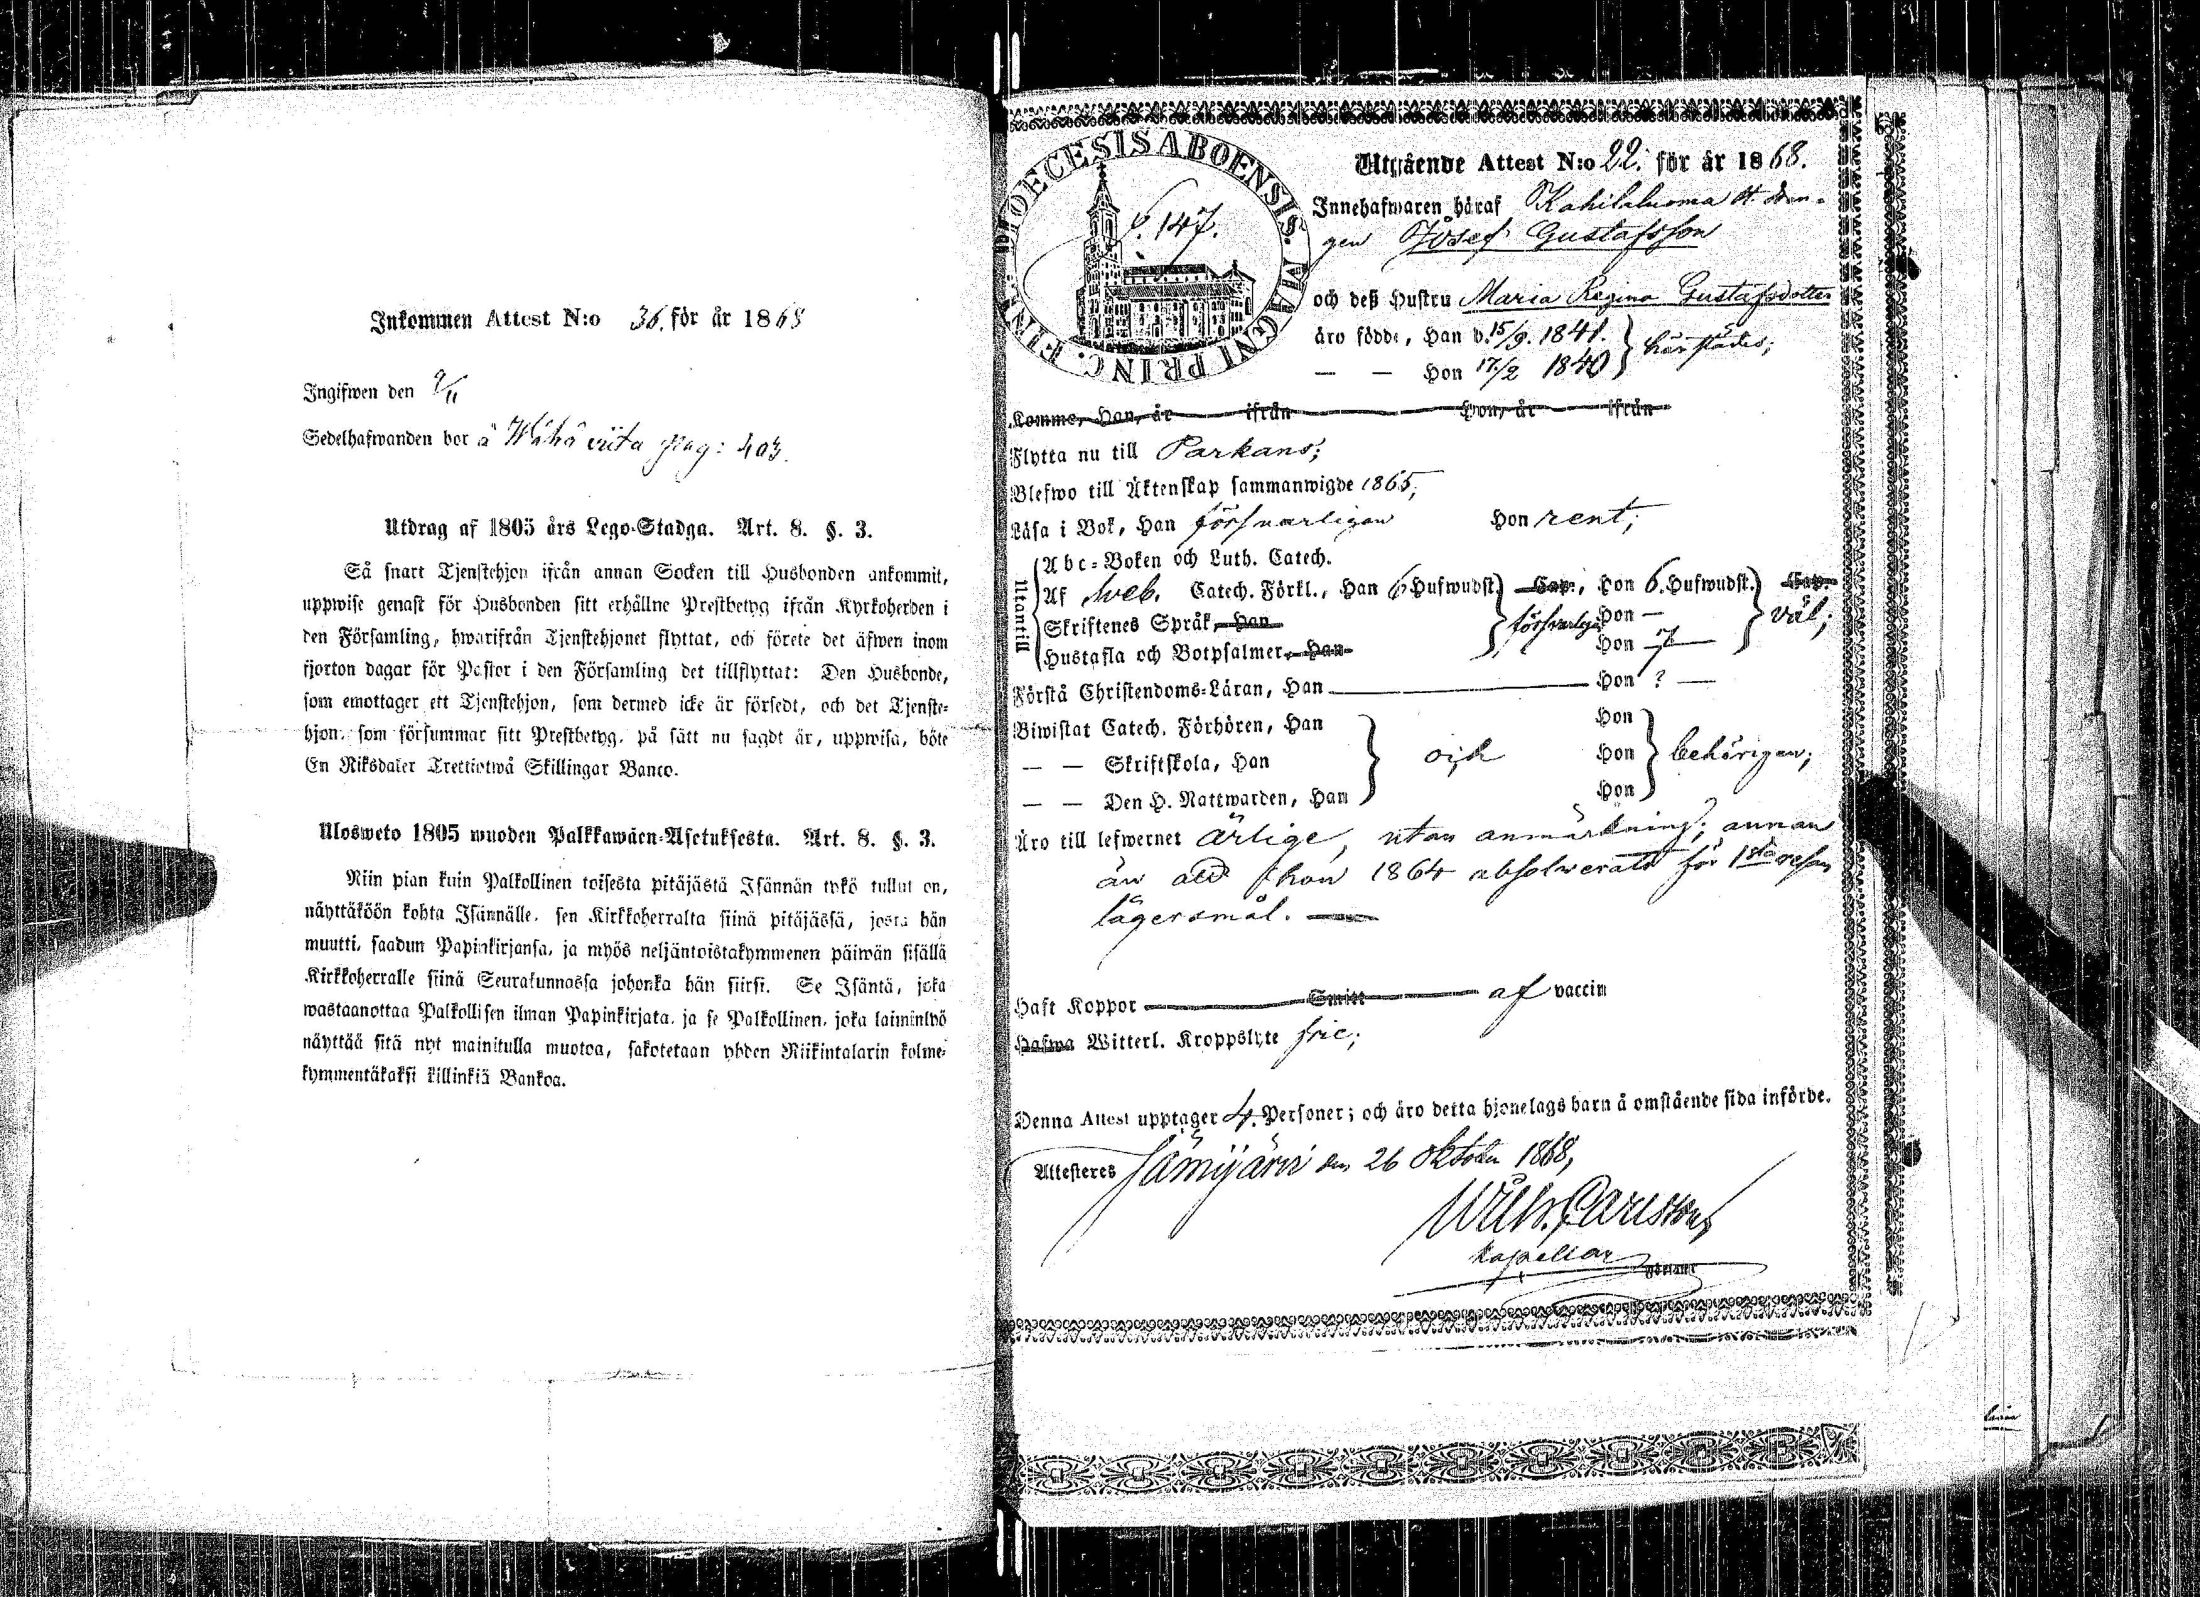 Inkommen Attest N:o 36. för år 1868
Ingifwen den 9/11
Sedelhafwanden bor å Wähä viita pag: 403.
Utdrag af 1805 års Lego-Stadga. Art. 8. §. 3.
Så snart Tjenstehjon ifrån annan Socken till Husbonden ankommit,
uppwise genast för Husbonden sitt erhållne Prestbetyg ifrån Kyrkoherden i
den Församling, hwarifrån Tjenstehjonet flyttat, och förete det äfwen inom
fjorton dagar för Pastor i den Församling det tillflyttat: Den Husbonde,
som emottager ett Tjenstehjon, som dermed icke är försedt, och det Tjenste-
hjon, som försummar sitt Prestbetyg, på sätt nu sagdt är, uppwisa, böte
En Riksdaler Trettiotwå Skillingar Banco.
Ulosweto 1805 wuoden Palkkawäen-Asetuksesta. Art. 8. §. 3.
Niin pian kuin Palkollinen toisesta pitäjästä Isännän tykö tullut on,
näyttäköön kohta Isännälle, sen Kirkkoherralta siinä pitäjässä, josta hän
muutti, saadun Papinkirjansa, ja myös neljäntoistakymmenen päiwän sisällä
Kirkkoherralle siinä Seurakunnassa johonka hän siirsi. Se Isäntä, joka
wastaanottaa Palkollisen ilman Papinkirjata, ja se Palkollinen, joka laiminlyö
näyttää sitä nyt mainitulla muotoa, sakotetaan yhden Riikintalarin kolme-
kymmentäkaksi killinkiä Bankoa.
DIOECESIS ABOENSIS. MAGNI PRINC. FINL.
p. 147.
Utgående Attest N:o 22. för år 1868.
Innehafwaren häraf Kahilaluoma tt. drän-
gen Josef Gustafsson
och deß Hustru Maria Regina Gustafsdotter
äro födde, Han d. 15/9. 1841. } härstädes;
— — Hon 17/2 1840
Komme, Han, år ifrån Hon, år ifrån
Flytta nu till Parkano;
Blefwo till Äktenskap sammanwigde 1865;
Läsa i Bok, Han försvarligen Hon rent;
Utantill
Abc-Boken och Luth. Catech.
Af Sveb. Catech. Förkl., Han 6 Hufwudst. Cap., Hon 6. Hufwudst. Cap.
Skriftenes Språk, Han försvarligt Hon — väl;
Hustafla och Botpsalmer, Han Hon
Förstå Christendoms-Läran, Han Hon ? —
Biwistat Catech. Förhören, Han Hon
— — Skriftskola, Han och Hon behörigen;
— — Den H. Nattwarden, Han Hon
Äro till lefwernet ärlige, utan anmärkning, annan
än att hon 1864 absolverats för 1sta resan
lägersmål. —
Haft Koppor Smitt af vaccin
Hafwa Witterl. Kroppslyte frie;
Denna Attest upptager 4. Personer; och äro detta hjonelags barn å omstående sida införde.
Attesteras Jämijärvi den 26 Oktober 1868,
Wilh. Carlsson
Kapellan